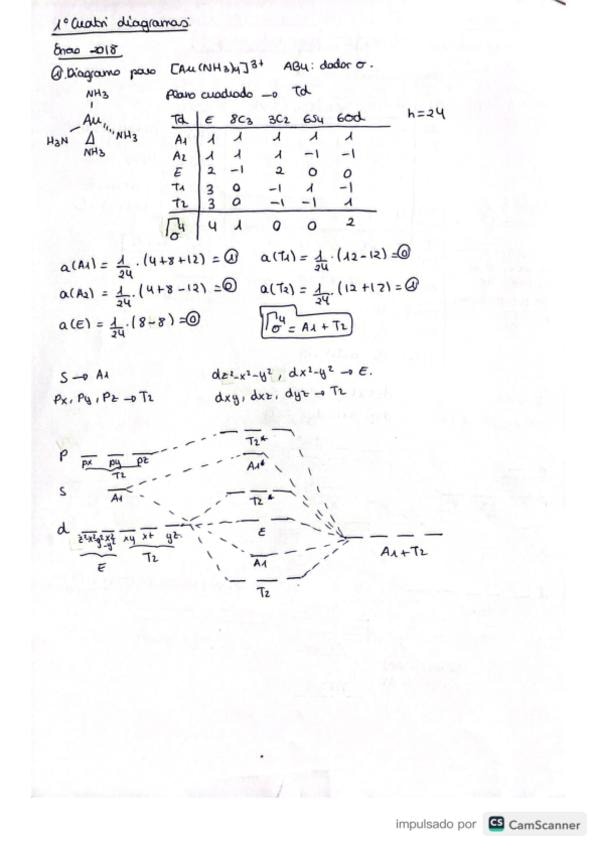 1º Cuatri diagramas:
Enero 2018
②. Diagrama para [Au(NH3)4]3+ AB4: dador σ.
NH3
Au
H3N
NH3
NH3
Plano cuadrado → Td
Td E 8C3 3C2 6S4 6σd h=24
A1 1 1 1 1 1
A2 1 1 1 -1 -1
E 2 -1 2 0 0
T1 3 0 -1 1 -1
T2 3 0 -1 -1 1
Γσ4 4 1 0 0 2
a(A1) = 1/24 · (4+8+12) = ① a(T1) = 1/24 · (12-12) = ⓪
a(A2) = 1/24 · (4+8-12) = ⓪ a(T2) = 1/24 · (12+12) = ①
a(E) = 1/24 · (8-8) = ⓪ Γσ4 = A1 + T2
S → A1 dz²-x²-y², dx²-y² → E.
Px, Py, Pz → T2 dxy, dxz, dyz → T2
P px py pz T2 T2*
S A1 A1*
T2*
d z²-x²-y² x²-y² xy xz yz E
E T2 A1 A1+T2
T2
impulsado por CS CamScanner